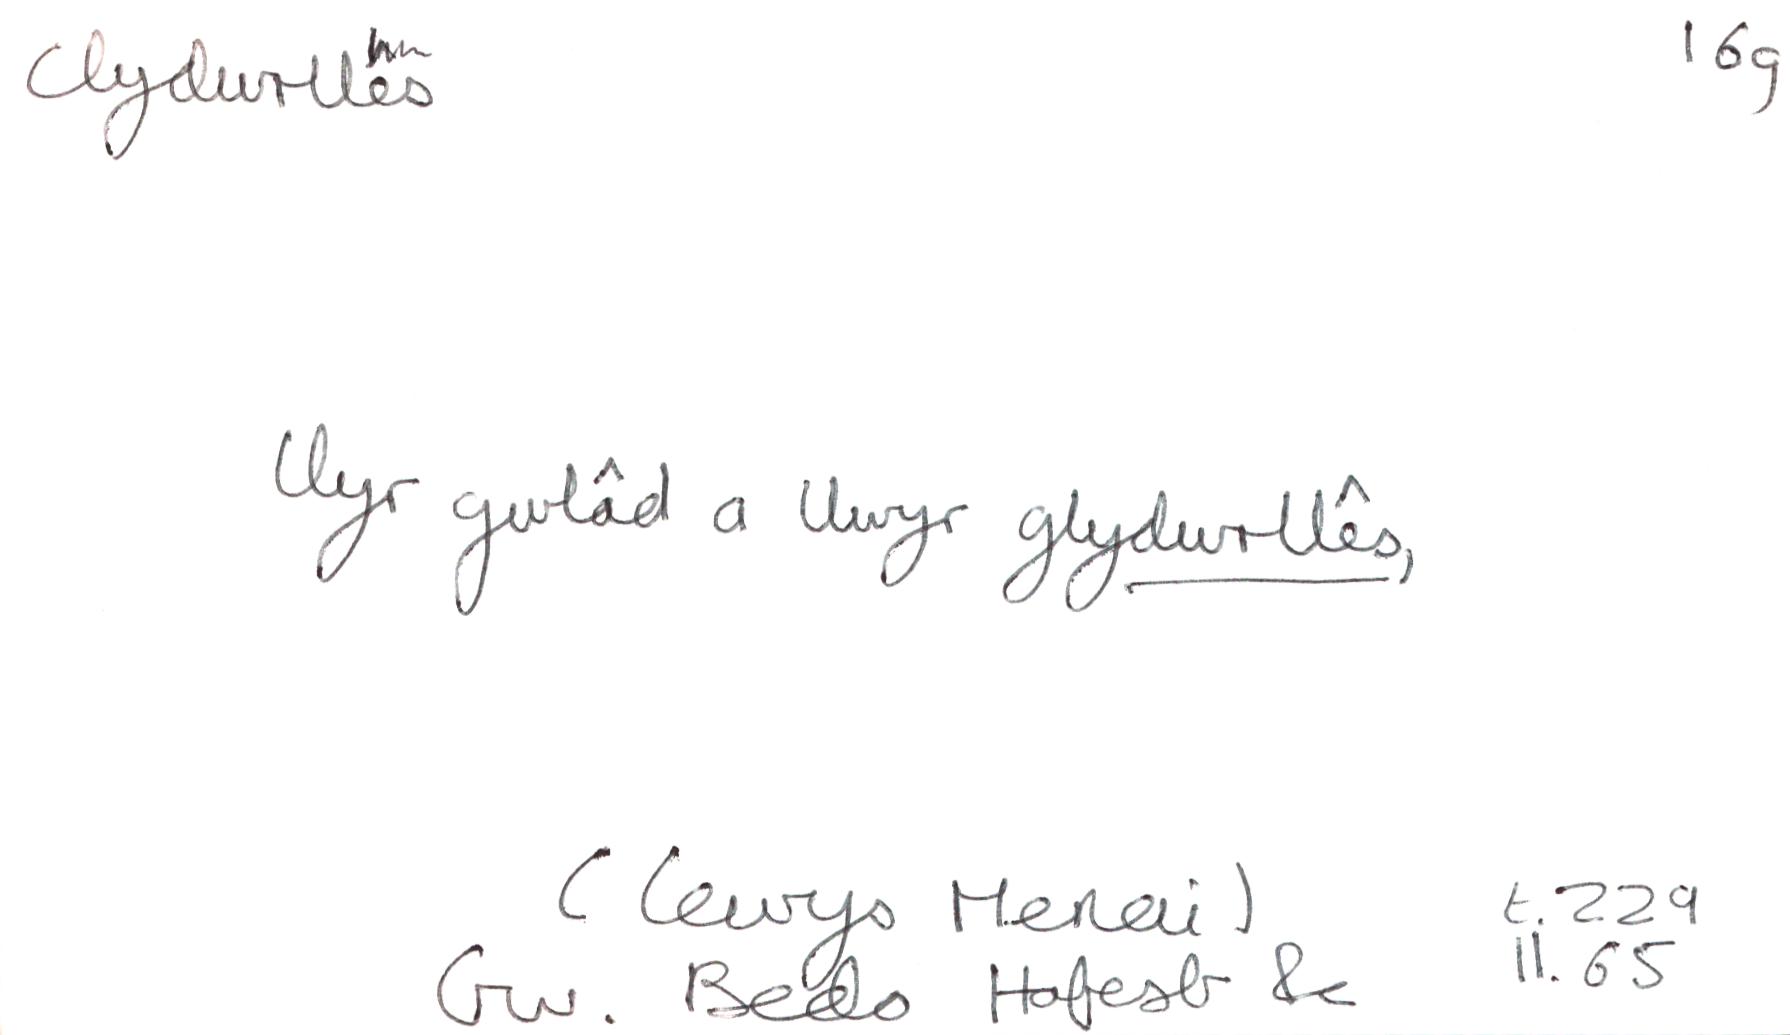 Clydwrllês 16g
Llyr gwlâd a llwyr glydwrllês,
(Lewys Menai) t. 229
Gw. Bedo Hafesb &c ll. 65